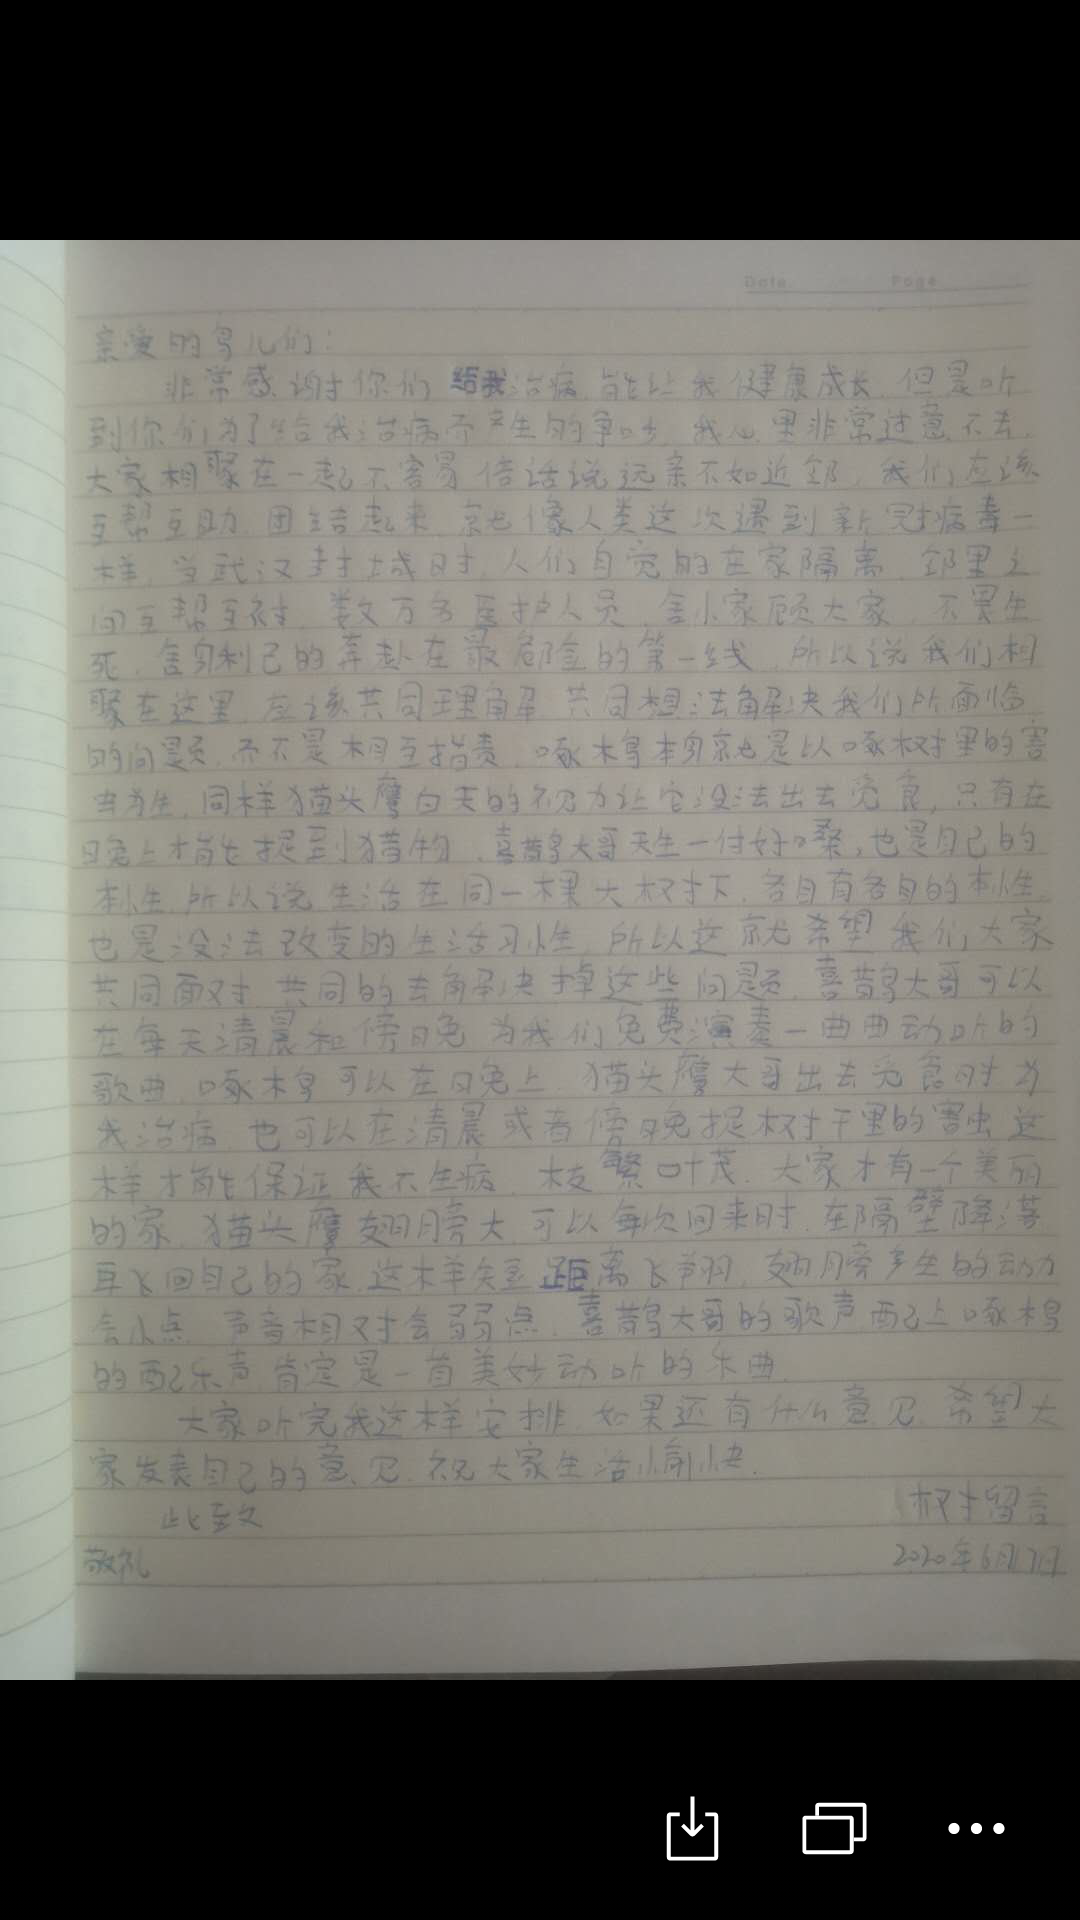 Date Page
亲爱的鸟儿们:
非常感谢你们给我治病,能让我健康成长,但是听
到你们为了给我治病而产生的争吵,我心里非常过意不去,
大家相聚在一起不容易,俗话说远亲不如近邻,我们应该
互帮互助,团结起来,就像人类这次遇到新冠病毒一
样,当武汉封城时,人们自觉的在家隔离,邻里之
间互帮互衬,数万名医护人员,舍小家顾大家,不畏生
死,舍身利己的奔赴在最危险的第一线,所以说我们相
聚在这里,应该共同理解,共同想法解决我们所面临
的问题,而不是相互指责,啄木鸟本身就是以啄树里的害
虫为生,同样猫头鹰白天的视力让它没法出去觅食,只有在
晚上才能捉到猎物,喜鹊大哥天生一付好嗓,也是自己的
本性,所以说生活在同一棵大树下,各自有各自的本性,
也是没法改变的生活习性,所以这就希望我们大家
共同面对,共同的去解决掉这些问题,喜鹊大哥可以
在每天清晨和傍晚为我们免费演奏一曲曲动听的
歌曲,啄木鸟可以在晚上,猫头鹰大哥出去觅食时为
我治病,也可以在清晨或者傍晚捉树干里的害虫,这
样才能保证我不生病,枝繁叶茂,大家才有一个美丽
的家,猫头鹰翅膀大,可以每次回来时,在隔壁降落
再飞回自己的家,这样短距离飞翔,翅膀产生的动力
会小点,声音相对会弱点,喜鹊大哥的歌声配上啄木鸟
的配乐声,肯定是一首美妙动听的乐曲.
大家听完我这样安排,如果还有什么意见,希望大
家发表自己的意见,祝大家生活愉快.
此致 树留言
敬礼 2020年6月17日